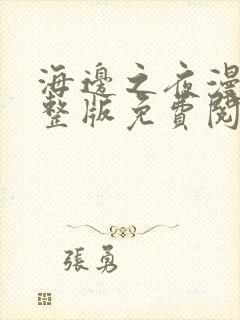 海邊之夜漫
整版免費閱
張勇